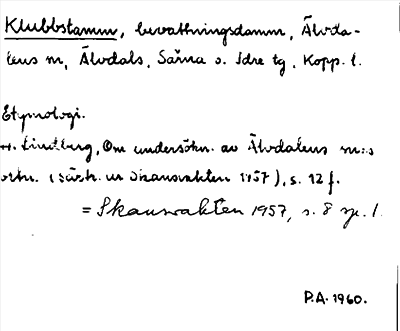 Klubbstamm, bevattningsdamm, Älvda-
lens m, Älvdals, Särna o. Idre tg, Kopp. l.
Etymologi.
H. Lindberg, Om undersökn. av Älvdalens m:s
ortn. (särtr. ur Skansvakten 1957), s. 12 f.
= Skansvakten 1957, s. 8 sp. 1.
P.A. 1960.